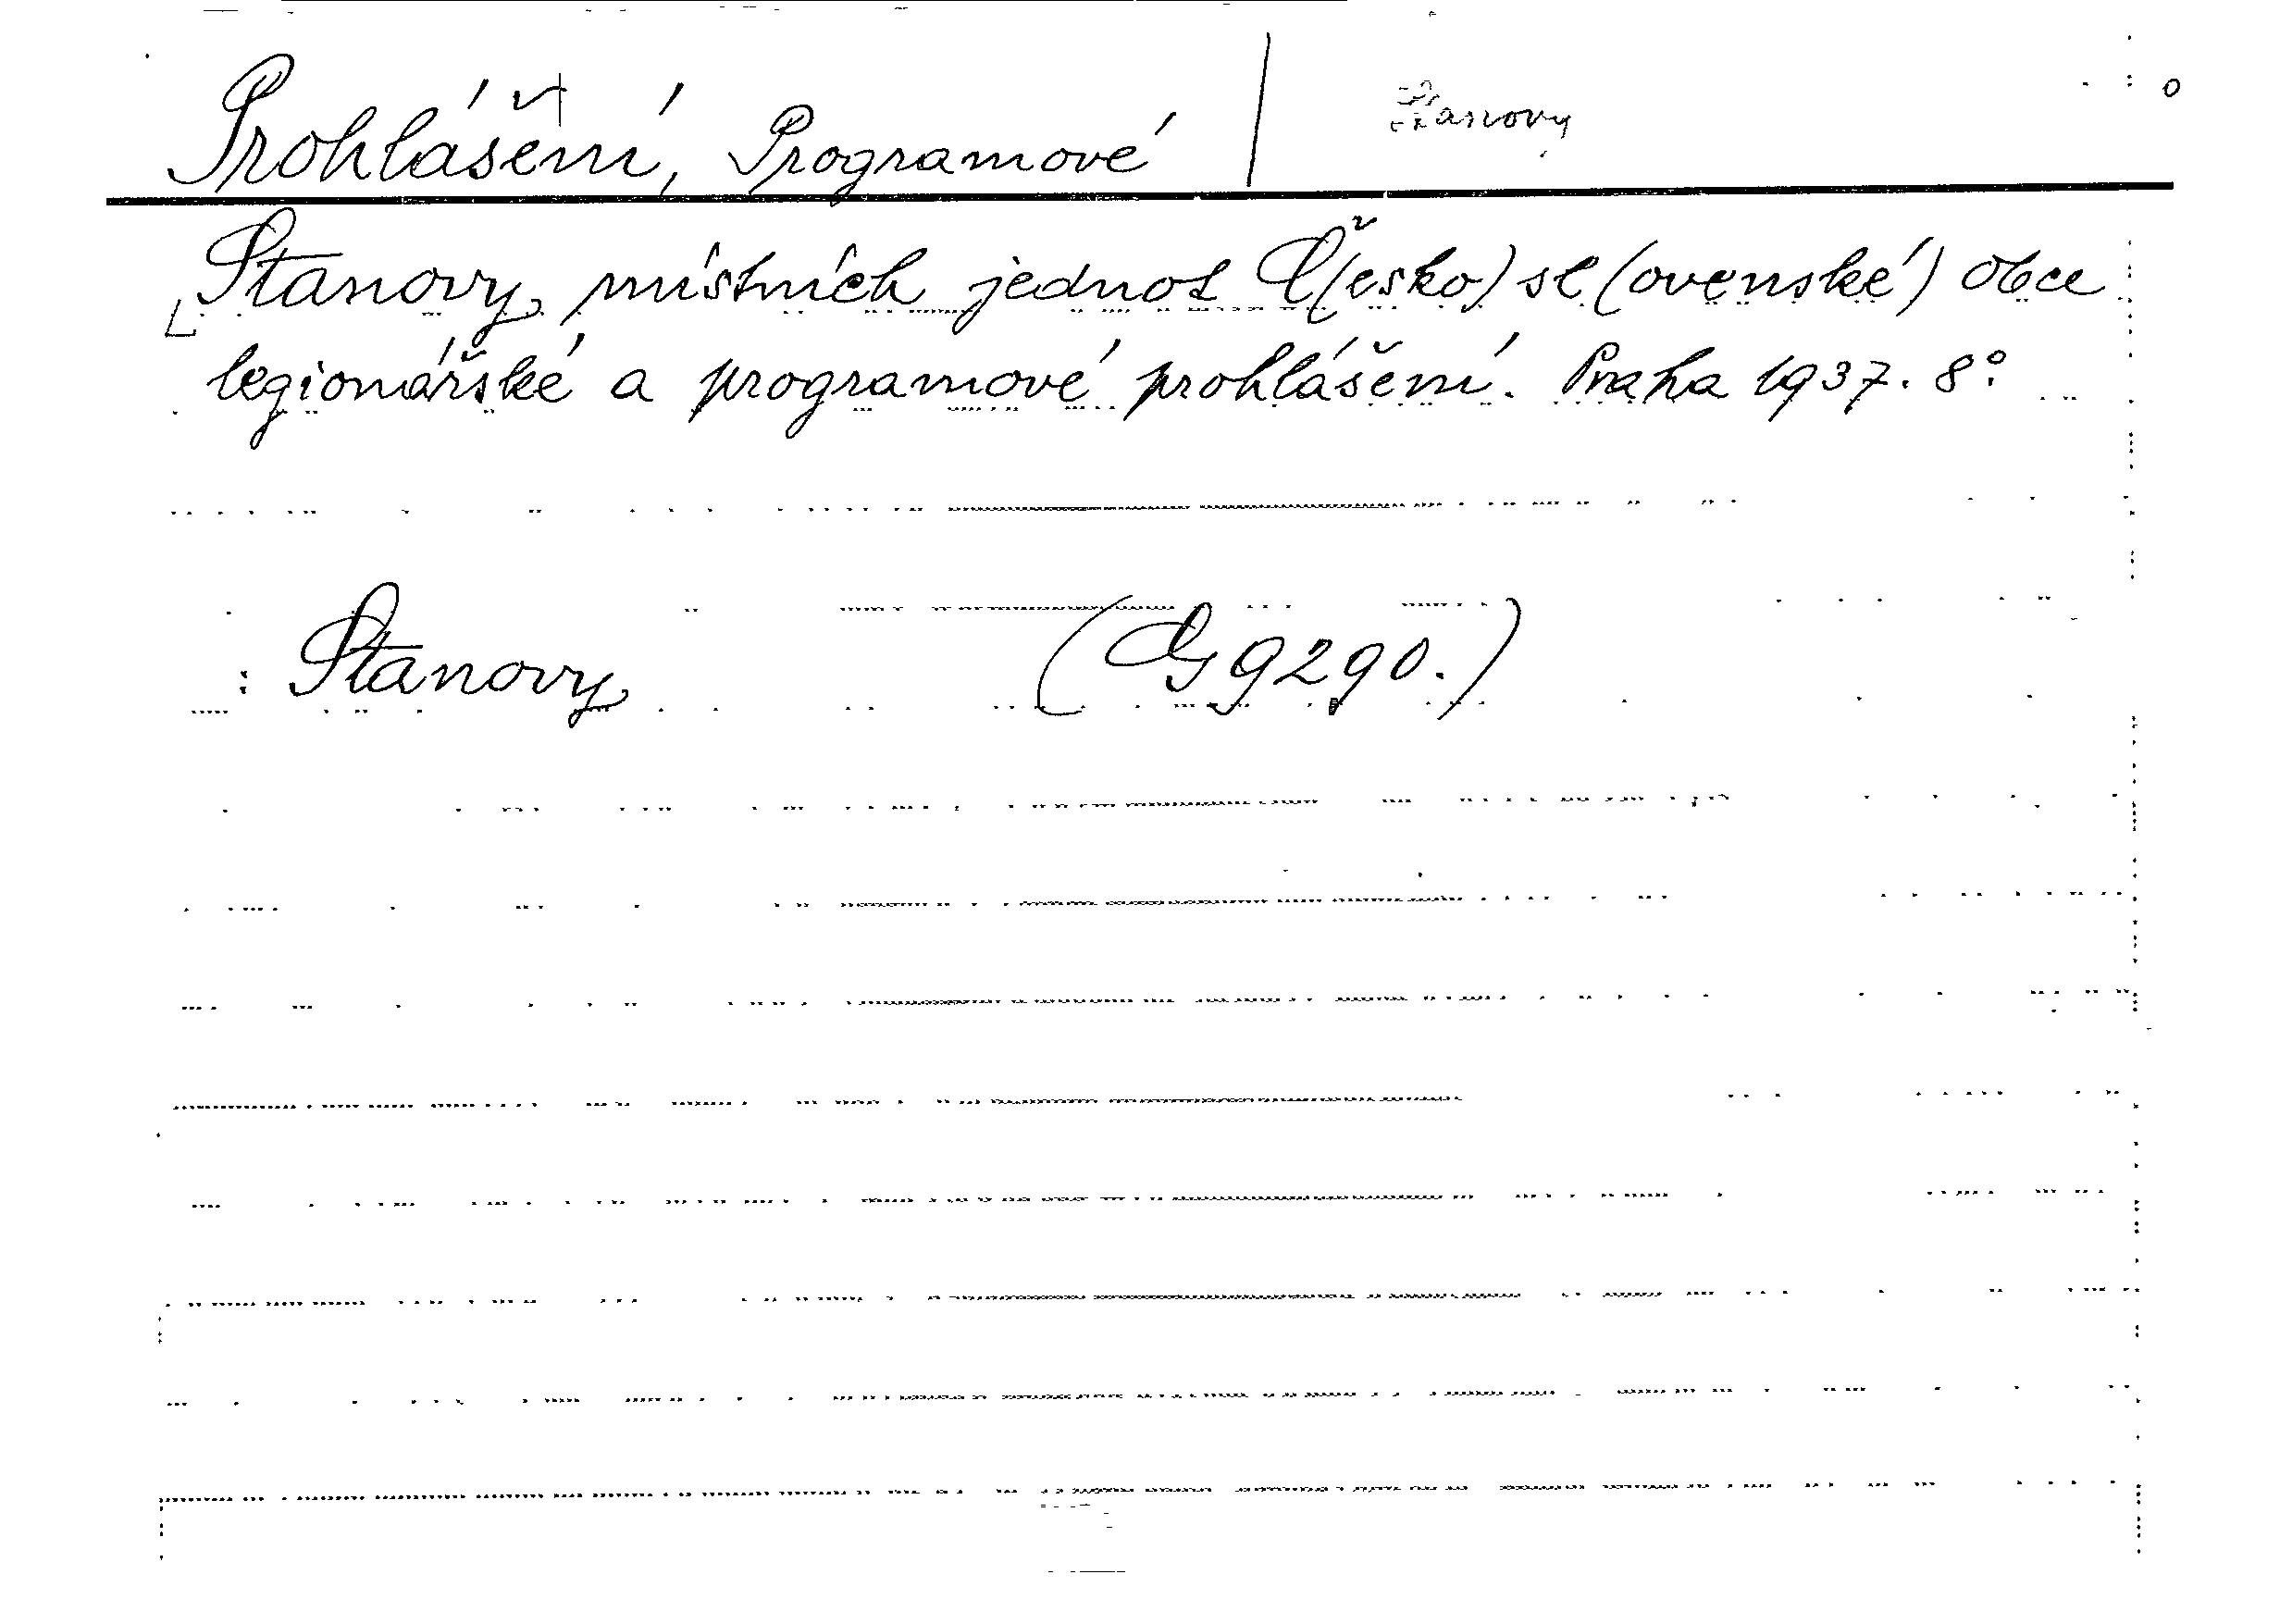 Prohlášení, Programové | Stanovy
Stanovy místních jednot Č(esko)sl(ovenské) obce
legionářské a programové prohlášení. Praha 1937. 8°.
: Stanovy (G 9290.)